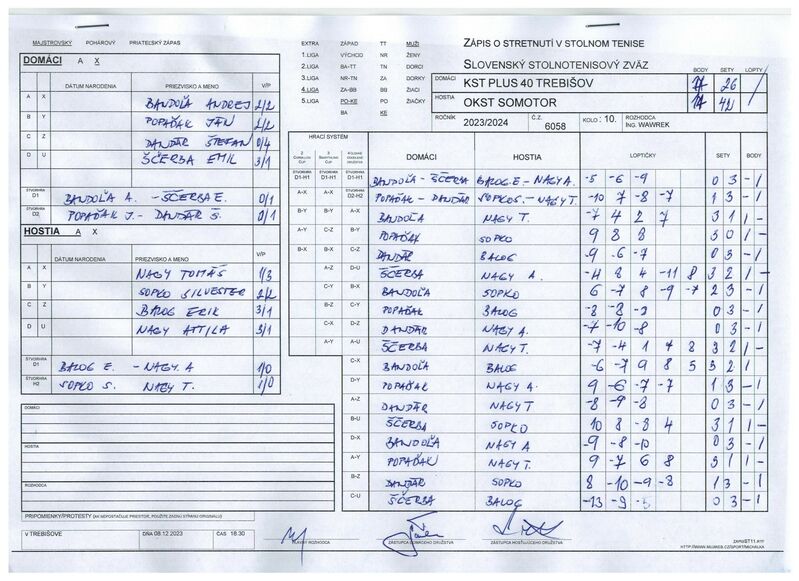 MAJSTROVSKÝ POHÁROVÝ PRIATEĽSKÝ ZÁPAS
DOMÁCI A X
DÁTUM NARODENIA PRIEZVISKO A MENO V/P
A X BANDOĽA ANDREJ 2/2
B Y POPAĎAK JÁN 2/2
C Z DANDÁR ŠTEFAN 0/4
D U ŠČERBA EMIL 3/1
ŠTVORHRA D1 BANDOĽA A. - ŠČERBA E. 0/1
ŠTVORHRA D2 POPAĎAK J. - DANDÁR Š. 0/1
HOSTIA A X
DÁTUM NARODENIA PRIEZVISKO A MENO V/P
A X NAGY TOMÁŠ 1/3
B Y SOPKO SILVESTER 2/2
C Z BALOG ERIK 3/1
D U NAGY ATTILA 3/1
ŠTVORHRA D1 BALOG E. - NAGY A 1/0
ŠTVORHRA H2 SOPKO S. NAGY T. 1/0
DOMÁCI
HOSTIA
ROZHODCA
PRIPOMIENKY/PROTESTY (AK NEPOSTAČUJE PRIESTOR, POUŽITE ZADNÚ STRANU ORIGINÁLU)
V TREBIŠOVE DŇA 08.12.2023 ČAS 16.30
EXTRA ZÁPAD TT MUŽI
1.LIGA VÝCHOD NR ŽENY
2.LIGA BA-TT TN DORCI
3.LIGA NR-TN ZA DORKY
4.LIGA ZA-BB BB ŽIACI
5.LIGA PO-KE PO ŽIAČKY
BA KE
ZÁPIS O STRETNUTÍ V STOLNOM TENISE
SLOVENSKÝ STOLNOTENISOVÝ ZVÄZ
BODY SETY LOPTY
DOMÁCI KST PLUS 40 TREBIŠOV 26
HOSTIA OKST SOMOTOR 42
ROČNÍK 2023/2024 Č.Z. 6058 KOLO : 10. ROZHODCA ING. WAWREK
HRACÍ SYSTÉM
DOMÁCI HOSTIA LOPTIČKY SETY BODY
D1-H1 D1-H1 D1-H1 BANDOĽA - ŠČERBA BALOG E - NAGY A. -5 -6 -9 0 3 - 1
A-X A-X D2-H2 POPAĎAK - DANDÁR SOPKO S. - NAGY T. -10 7 -8 -7 1 3 - 1
B-Y B-Y A-X BANDOĽA NAGY T. -7 4 2 7 3 1 1 -
A-Y C-Z B-Y POPAĎAK SOPKO 9 8 8 3 0 1 -
B-X B-X C-Z DANDÁR BALOG -9 -6 -7 0 3 - 1
A-Z D-U ŠČERBA NAGY A. -4 8 4 -11 8 3 2 1 -
C-Y B-X BANDOĽA SOPKO 6 -7 8 -9 -7 2 3 - 1
B-Z C-Y POPAĎAK BALOG -8 -8 -2 0 3 - 1
C-X D-Z DANDÁR NAGY A. -7 -10 -8 0 3 - 1
A-Y A-U ŠČERBA NAGY T. -7 -4 1 7 8 3 2 1 -
C-X BANDOĽA BALOG -6 -7 9 8 5 3 2 1
D-Y POPAĎAK NAGY A. 9 -6 -7 -7 1 3 - 1
A-Z DANDÁR NAGY T -8 -9 -8 0 3 - 1
B-U ŠČERBA SOPKO 10 8 -8 4 3 1 1 -
D-X BANDOĽA NAGY A -9 -8 -10 0 3 - 1
A-Y POPAĎAK NAGY T. 9 -7 6 8 3 1 1 -
B-Z DANDÁR SOPKO 8 -10 -9 -8 1 3 - 1
C-U ŠČERBA BALOG -13 -9 0 3 - 1
HLAVNÝ ROZHODCA ZÁSTUPCA DOMÁCEHO DRUŽSTVA ZÁSTUPCA HOSŤUJÚCEHO DRUŽSTVA